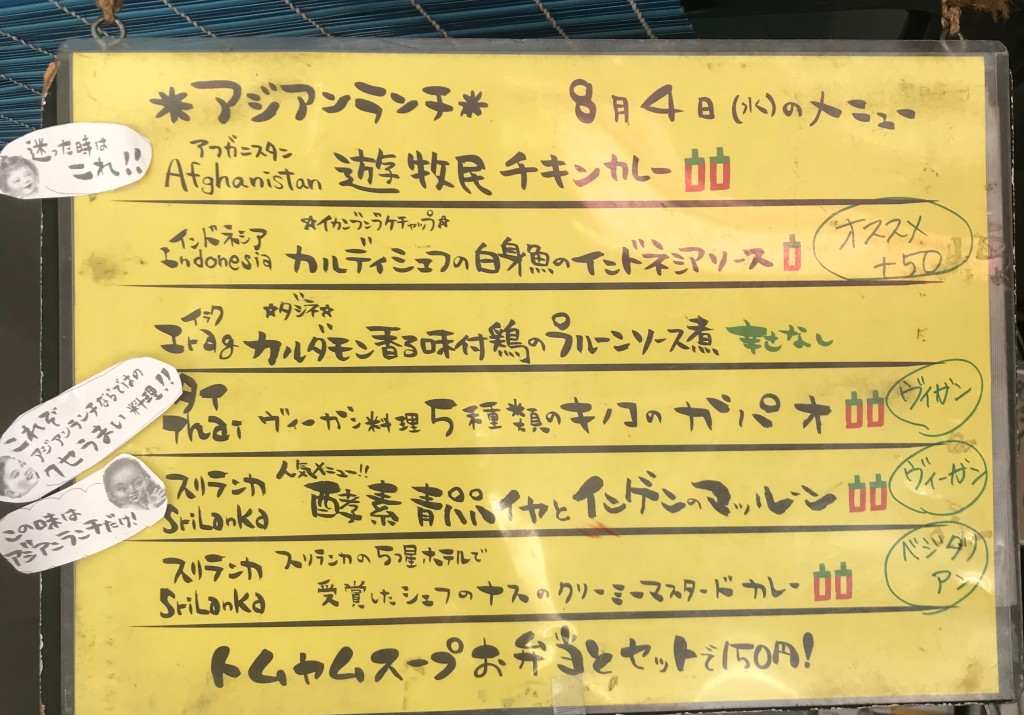 *アジアンランチ* 8月4日(水)のメニュー
迷った時は
これ!!
アフガニスタン
Afghanistan 遊牧民チキンカレー
☆イカンブンブラケチャップ☆
インドネシア
Indonesia カルディシェフの白身魚のインドネシアソース
オススメ
+50
イラク ☆タジネ☆
Iraq カルダモン香る味付鶏のプルーンソース煮 辛さなし
これぞ
アジアンランチならではの
クセうまい料理!!
タイ
Thai ヴィーガン料理 5種類のキノコのガパオ
ヴィガン
この味は
アジアンランチだけ!
人気メニュー!!
スリランカ
SriLanKa 酵素青パパイヤとインゲンのマッルーン
ヴィーガン
スリランカ スリランカの5つ星ホテルで
SriLanKa 受賞したシェフのナスのクリーミーマスタードカレー
ベジタリ
アン
トムヤムスープお弁当とセットで150円!